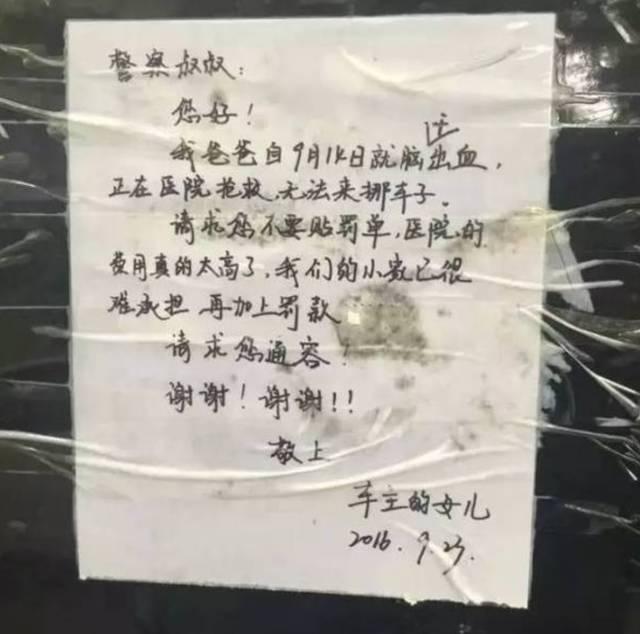 警察叔叔：
您好！
我爸爸自9月14日就脑出血，
正在医院抢救，无法来挪车子。
请求您不要贴罚单，医院的
费用真的太高了，我们的小数已很
难承担 再加上罚款
请求您通容！
谢谢！谢谢！！
敬上
车主的女儿
2016.9.23.